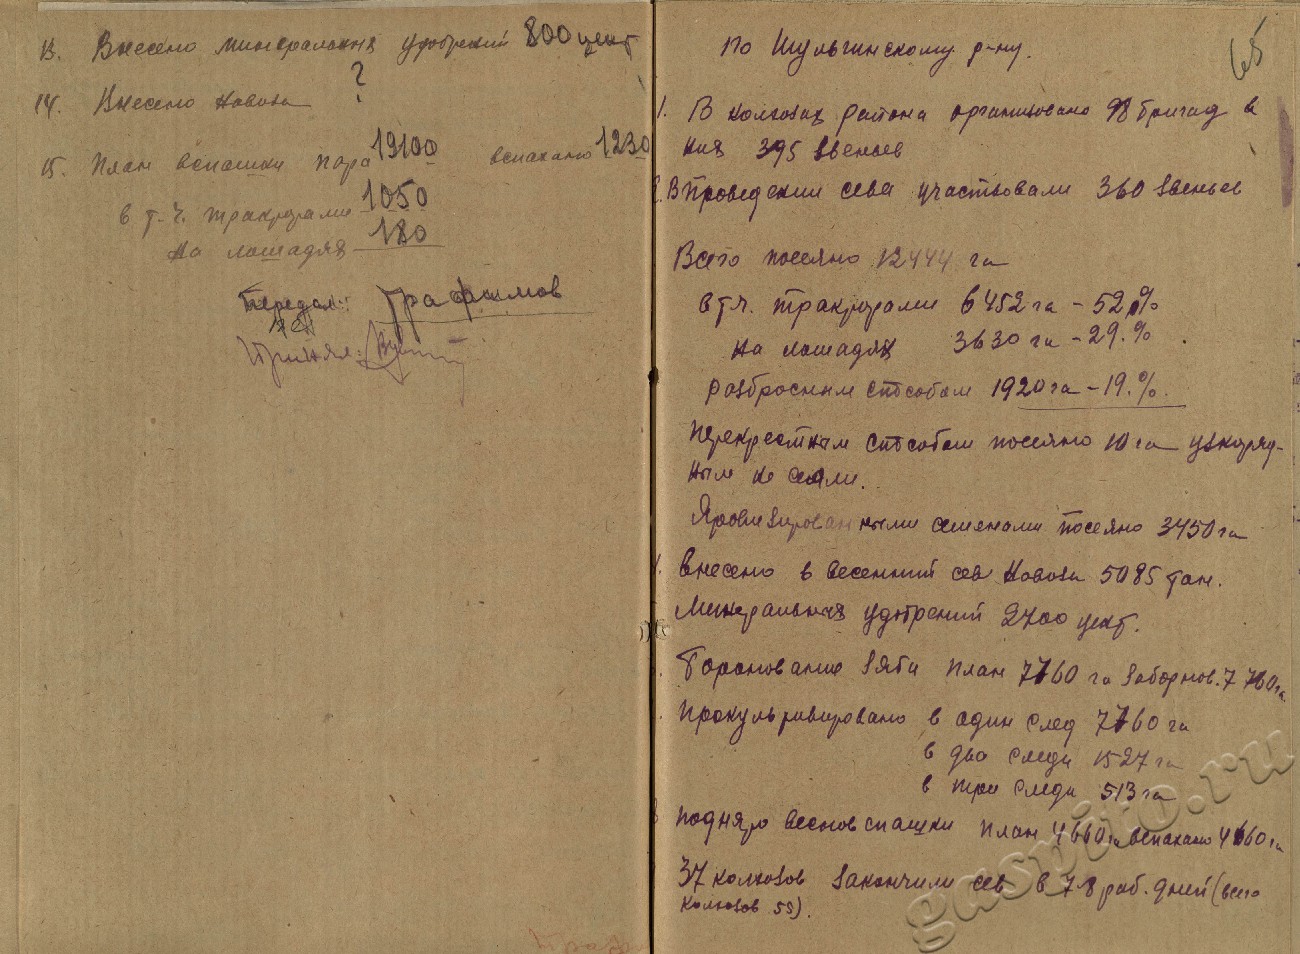 13. Внесено минеральных удобрений 800 цент
14. Внесено навоза ?
15. План вспашки пара 19100 вспахано 1230
в т.ч. тракторами 1050
на лошадях 180
Передал: Трафимов
Принял:
65
по Шульгинскому р-ну.
1. В колхозах района организовано 98 бригад в
них 395 звеньев
2. В проведении сева участвовали 360 звеньев
Всего посеяно 12444 га
в т.ч. тракторами 6452 га - 52%
на лошадях 3630 га - 29.%
разбросным способом 1920 га - 19.%.
Перекрестным способом посеяно 10 га узкоряд-
ным не сеяли.
Яровизированными семенами посеяно 3450 га
Внесено в весенний сев навоза 5085 тон.
Минеральных удобрений 2700 цент.
Боронование зяби план 7760 га заборнов. 7760 га.
Прокультивировано в один след 7760 га
в два следа 1527 га
в три следа 513 га
поднято весновспашки план 4660 га вспахано 4660 га
37 колхозов закончили сев в 7-8 раб. дней (всего
колхозов 55).
gasvito.ru